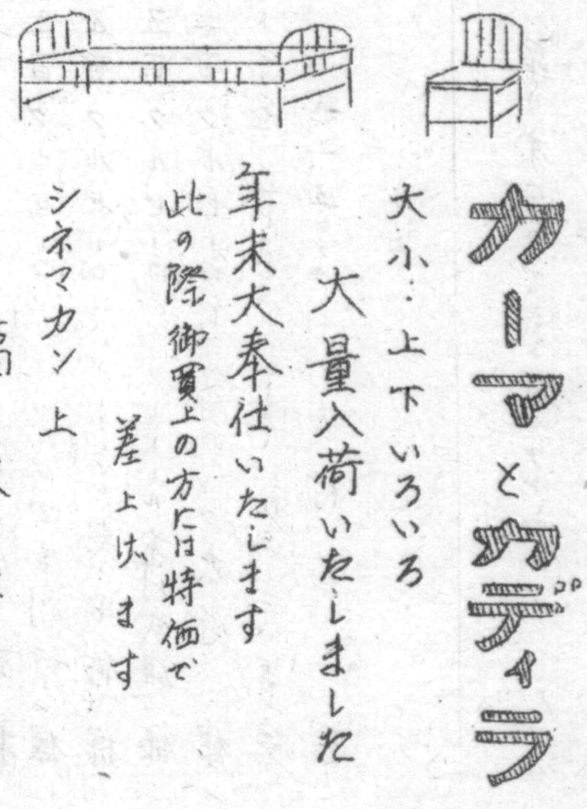 カーマとカディラ
大小・上下いろいろ
大量入荷いたしました
年末大奉仕いたします
此の際御買上の方には特価で
差上げます
シネマカン上